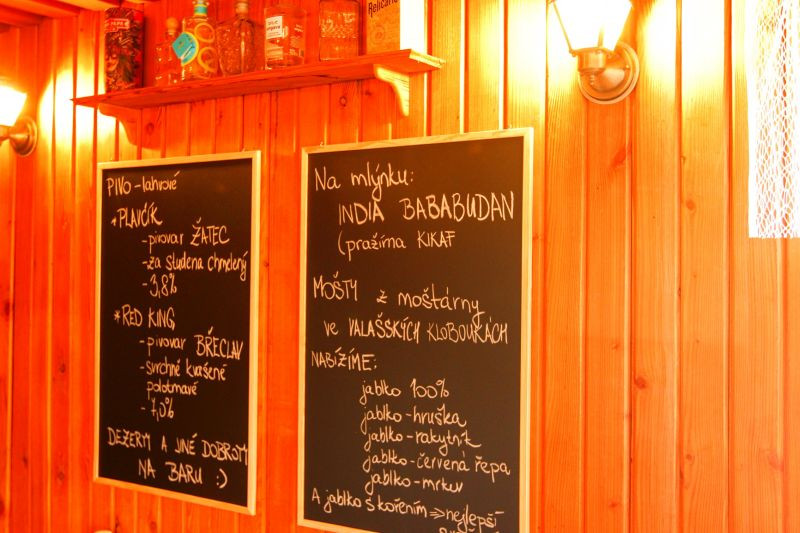 PIVO - lahvové
*PLAVČÍK
- pivovar ŽATEC
- za studena chmelený
- 3,8%
*RED KING
- pivovar BŘECLAV
- svrchně kvašené
polotmavé
- 7,0%
DEZERTY A JINÉ DOBROTY
NA BARU :)
Na mlýnku:
INDIA BABABUDAN
(pražírna KIKAF
MOŠTY z moštárny
ve VALAŠSKÝCH KLOBOUKÁCH
NABÍZÍME:
jablko 100%
jablko - hruška
jablko - rakytník
jablko - červená řepa
jablko - mrkev
A jablko s kořením => nejlepší